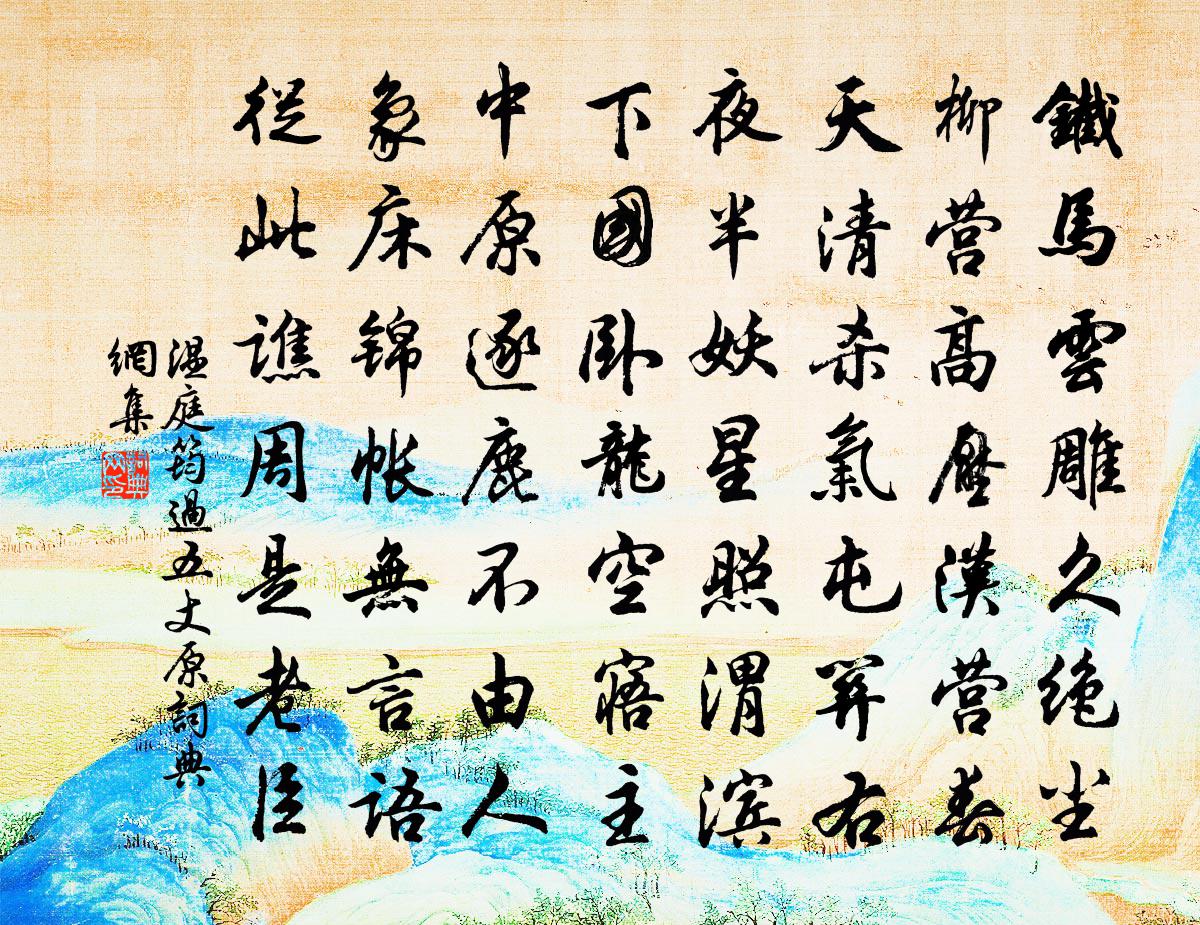 鐵馬雲雕久绝尘
柳营高壓漢营春
天清杀氣屯関右
夜半妖星照渭滨
下國卧龍空寤主
中原逐鹿不由人
象床锦帐無言語
從此譙周是老臣
温庭筠過五丈原詞典
網集